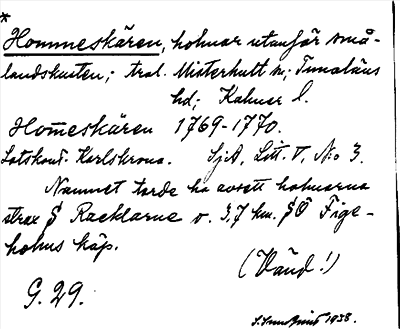 *
Hommeskären, holmar utanför små-
landskusten; tral. Misterhult sn; Tunaläns
hd; Kalmar l.
Hom̅eskären 1769-1770.
Lotskont. Karlskrona. SjA, Litt. V, No 3.
Namnet torde ha avsett holmarna
strax S Raeklarne o. 3,7 km. SÖ Fige-
holms köp.
(Vänd!)
G. 29.
1938.